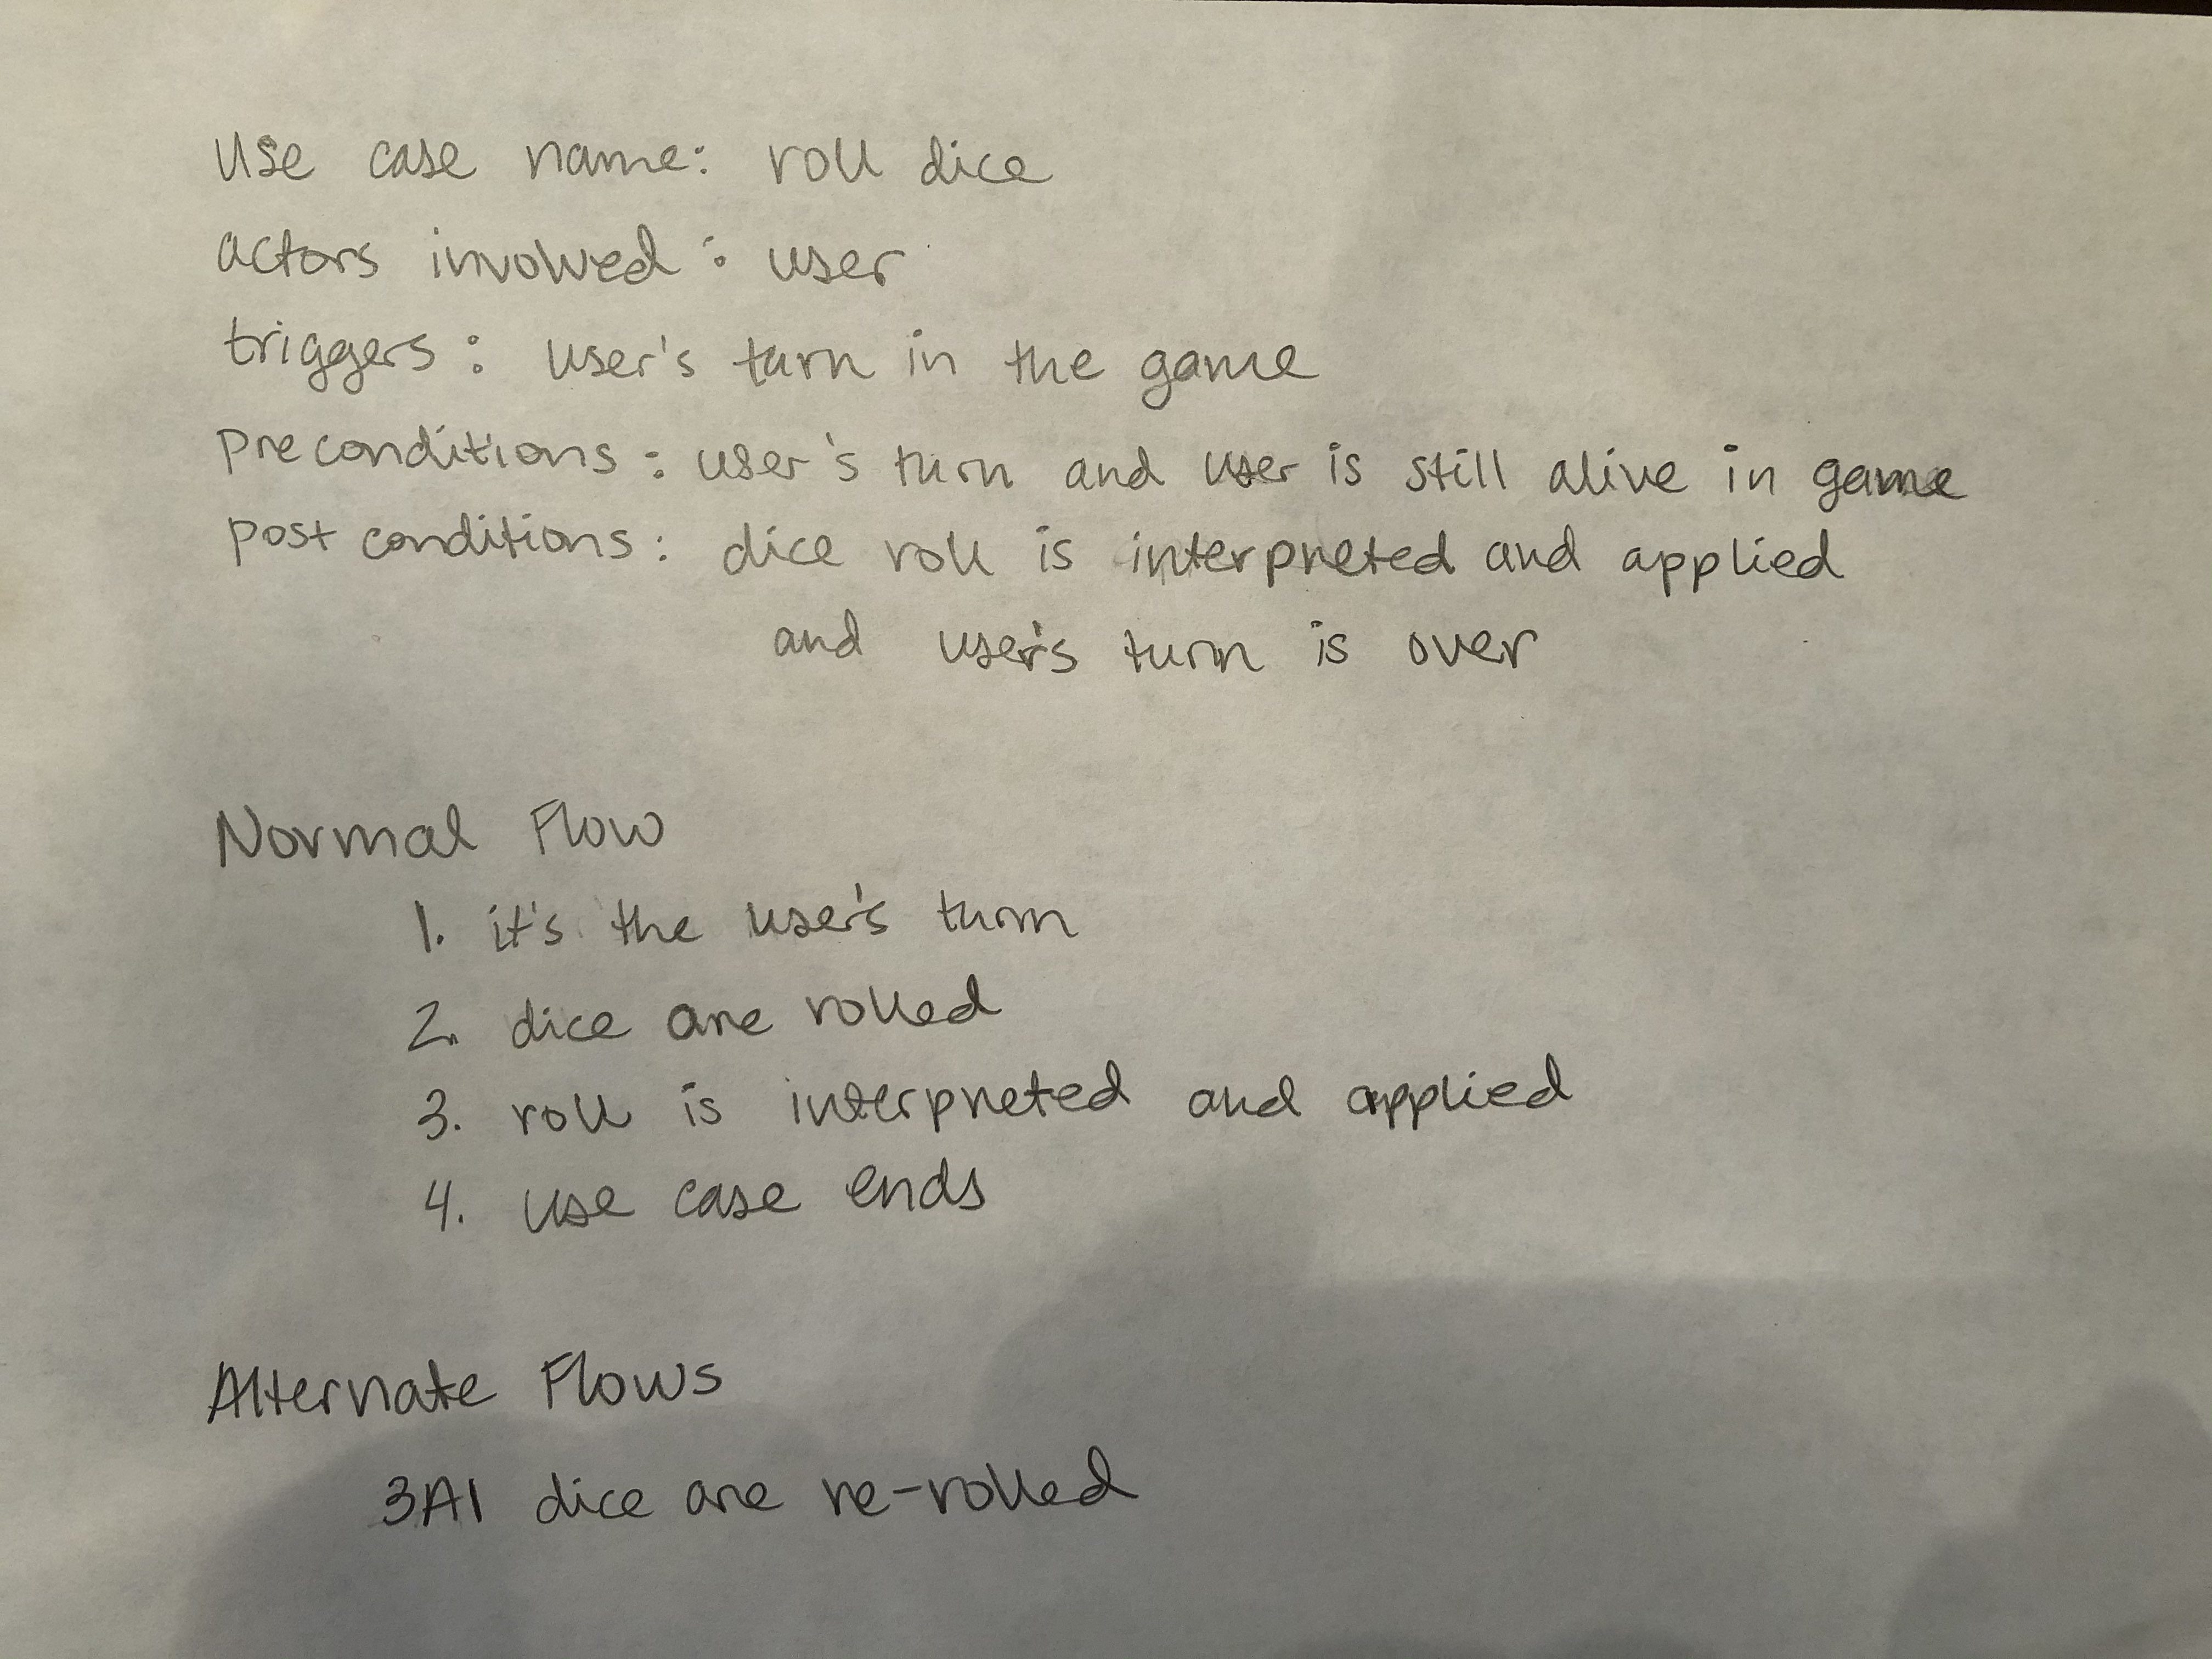 Use case name: roll dice
actors involved: user
triggers: user's turn in the game
preconditions: user's turn and user is still alive in game
post conditions: dice roll is interpreted and applied
and user's turn is over
Normal Flow
1. it's the user's turn
2. dice are rolled
3. roll is interpreted and applied
4. use case ends
Alternate Flows
3A1 dice are re-rolled